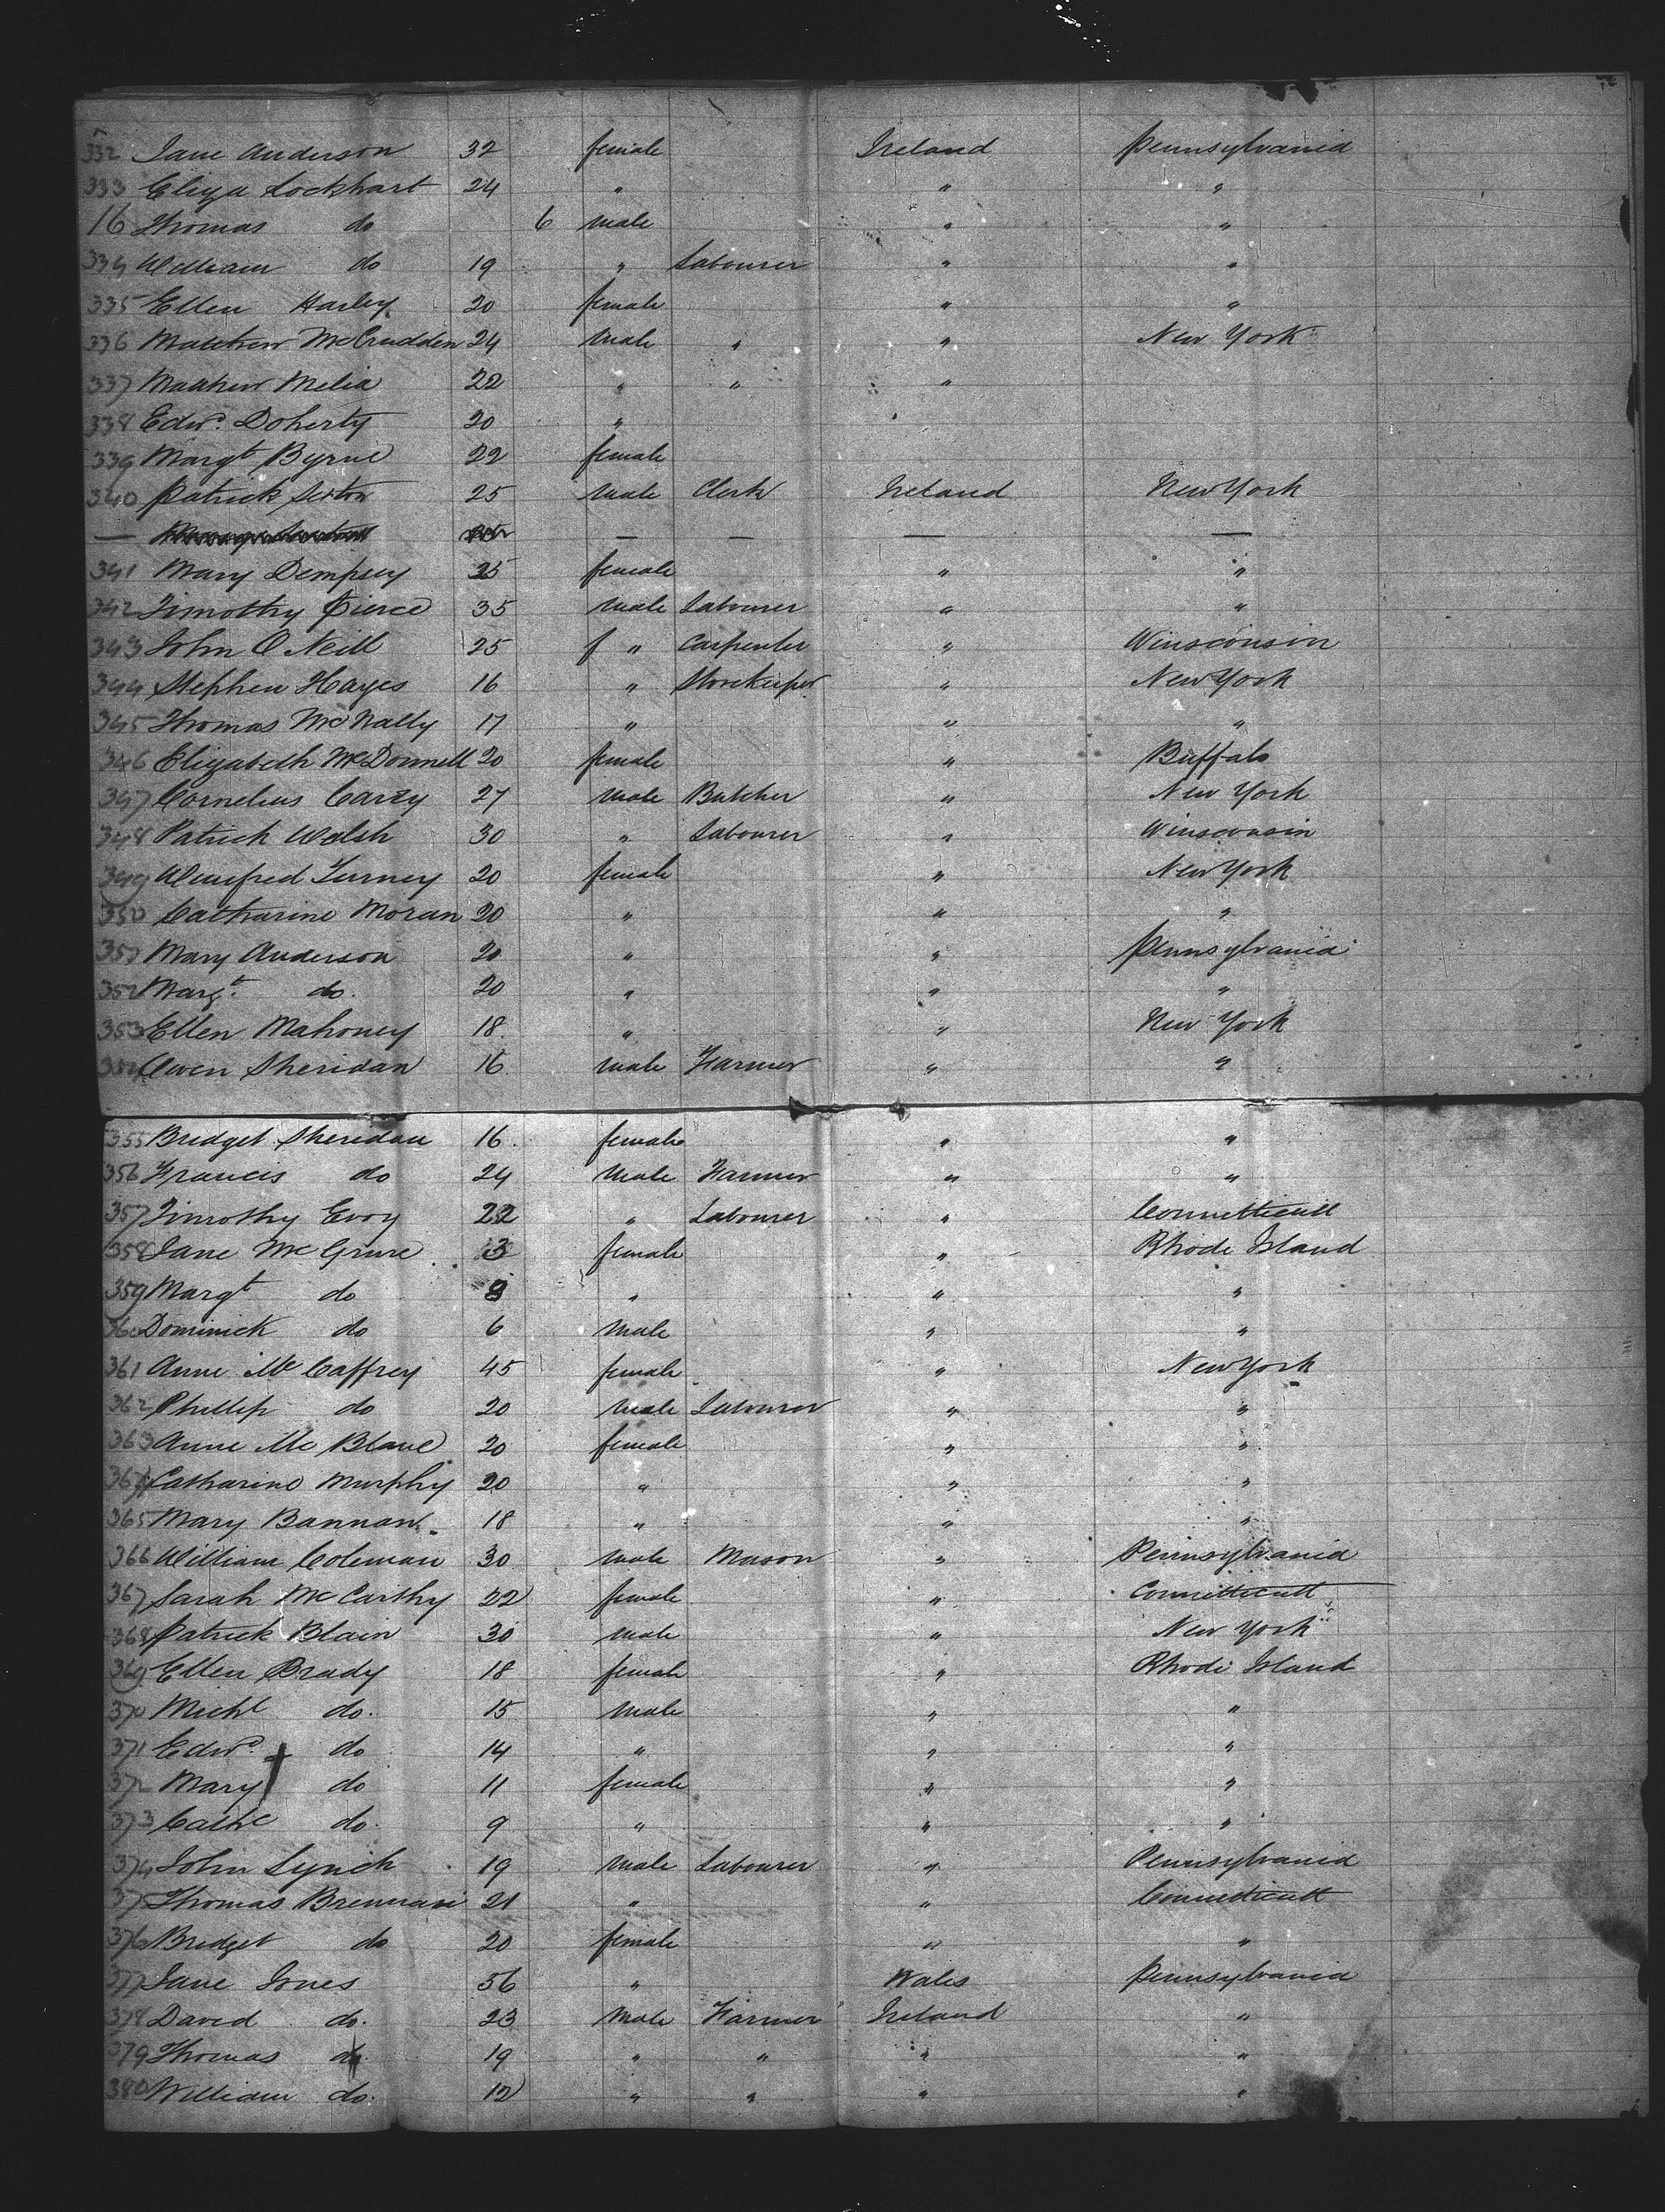 332 Jane Anderson 32 female Ireland Pennsylvania
333 Eliza Lockhart 24 " " "
16 Thomas do 6 male " "
334 William do 19 " Labourer " "
335 Ellen Harley 20 female " "
336 Matthew McCrudden 24 male " " New York
337 Matthew Melia 22 " " "
338 Edwd. Doherty 20 "
339 Margt Byrne 22 female
340 Patrick Sexton 25 male Clerk Ireland New York
— — — — —
341 Mary Dempsey 25 female " "
342 Timothy Pierce 35 male Labourer " "
343 John O Neill 25 f " Carpenter " Winsconsin
344 Stephen Hayes 16 " Storekeeper " New York
345 Thomas McNally 17 " " "
346 Elizabeth McDonnell 20 female " Buffalo
347 Cornelius Carey 27 male Butcher " New York
348 Patrick Walsh 30 " Labourer " Winsconsin
349 Winifred Turney 20 female " New York
350 Catharine Moran 20 " " "
351 Mary Anderson 20 " " Pennsylvania
352 Margt. do. 20 " " "
353 Ellen Mahoney 18. " " New York
354 Owen Sheridan 16. male Farmer " "
355 Bridget Sheridan 16. female " "
356 Francis do 24 male Farmer " "
357 Timothy Evoy 22 " Labourer " Connitticutt
358 Jane McGrure 3 female " Rhode Island
359 Margt do " " "
360 Dominick do 6 male " "
361 Anne McCaffrey 45 female " New York
362 Phillip do 20 male Labourer " "
363 Anne Mc Blane 20 female " "
364 Catharine Murphy 20 " " "
365 Mary Bannan 18 " " "
366 William Coleman 30 male Mason " Pennsylvania
367 Sarah McCarthy 22 female " Connitticutt
368 Patrick Blain 30 male " New York
369 Ellen Brady 18 female " Rhode Island
370 Michl do. 15 male " "
371 Edwd. do 14 " " "
372 Mary do 11 female " "
373 Cathe do. 9 " " "
374 John Lynch 19 male Labourer " Pennsylvania
375 Thomas Brennan 21 " " Connitticutt
376 Bridget do 20 female " "
377 Jane Jones 56 " Wales Pennsylvania
378 David do. 23 male Farmer Ireland "
379 Thomas do. 19 " " " "
380 William do. 12 " " " "